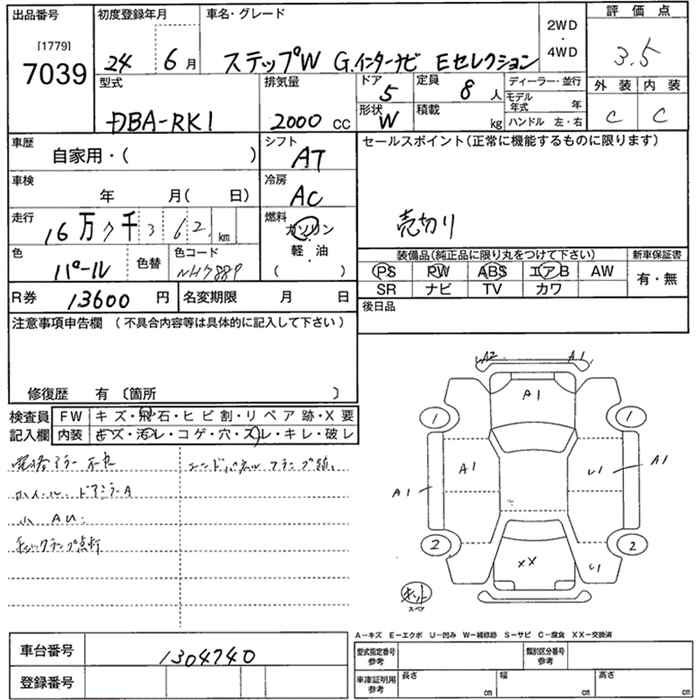 出品番号
[1779]
7039
初度登録年月
24 6月
車名・グレード
ステップW G.インターナビ Eセレクション
2WD
・
4WD
評価点
3.5
外装 内装
C C
型式
DBA-RK1
排気量
2000 cc
ドア
5
定員
8人
形状
W
積載
kg
ディーラー・並行
モデル年式 年
ハンドル 左・右
車歴
自家用・( )
シフト
AT
車検
年 月( 日)
冷房
AC
走行
16万7千362 km
燃料
ガソリン
・
軽・油
( )
色
パール
色替
色コード
NH788P
R券 13600円
名変期限 月 日
セールスポイント(正常に機能するものに限ります)
売切り
装備品(純正品に限り丸をつけて下さい)
PS PW ABS エアB AW
SR ナビ TV カワ
新車保証書
有・無
後日品
注意事項申告欄 (不具合内容等は具体的に記入して下さい)
修復歴 有 〔箇所 〕
検査員記入欄
FW キズ・飛石・ヒビ割・リペア跡・X要
内装 キズ・汚レ・コゲ・穴・スレ・キレ・破レ
ホイール、ドアミラーA
小 A U
チェックランプ点灯
A2 A1
A1
1 1
A1 A1 U1 A1
2 2
XX U1
キット
スペア
A-キズ E-エクボ U-凹み W-補修跡 S-サビ C-腐食 XX-交換済
車台番号 1304740
登録番号
型式指定番号
参考
類別区分番号
参考
車庫証明用
参考
長さ cm 幅 cm 高さ cm